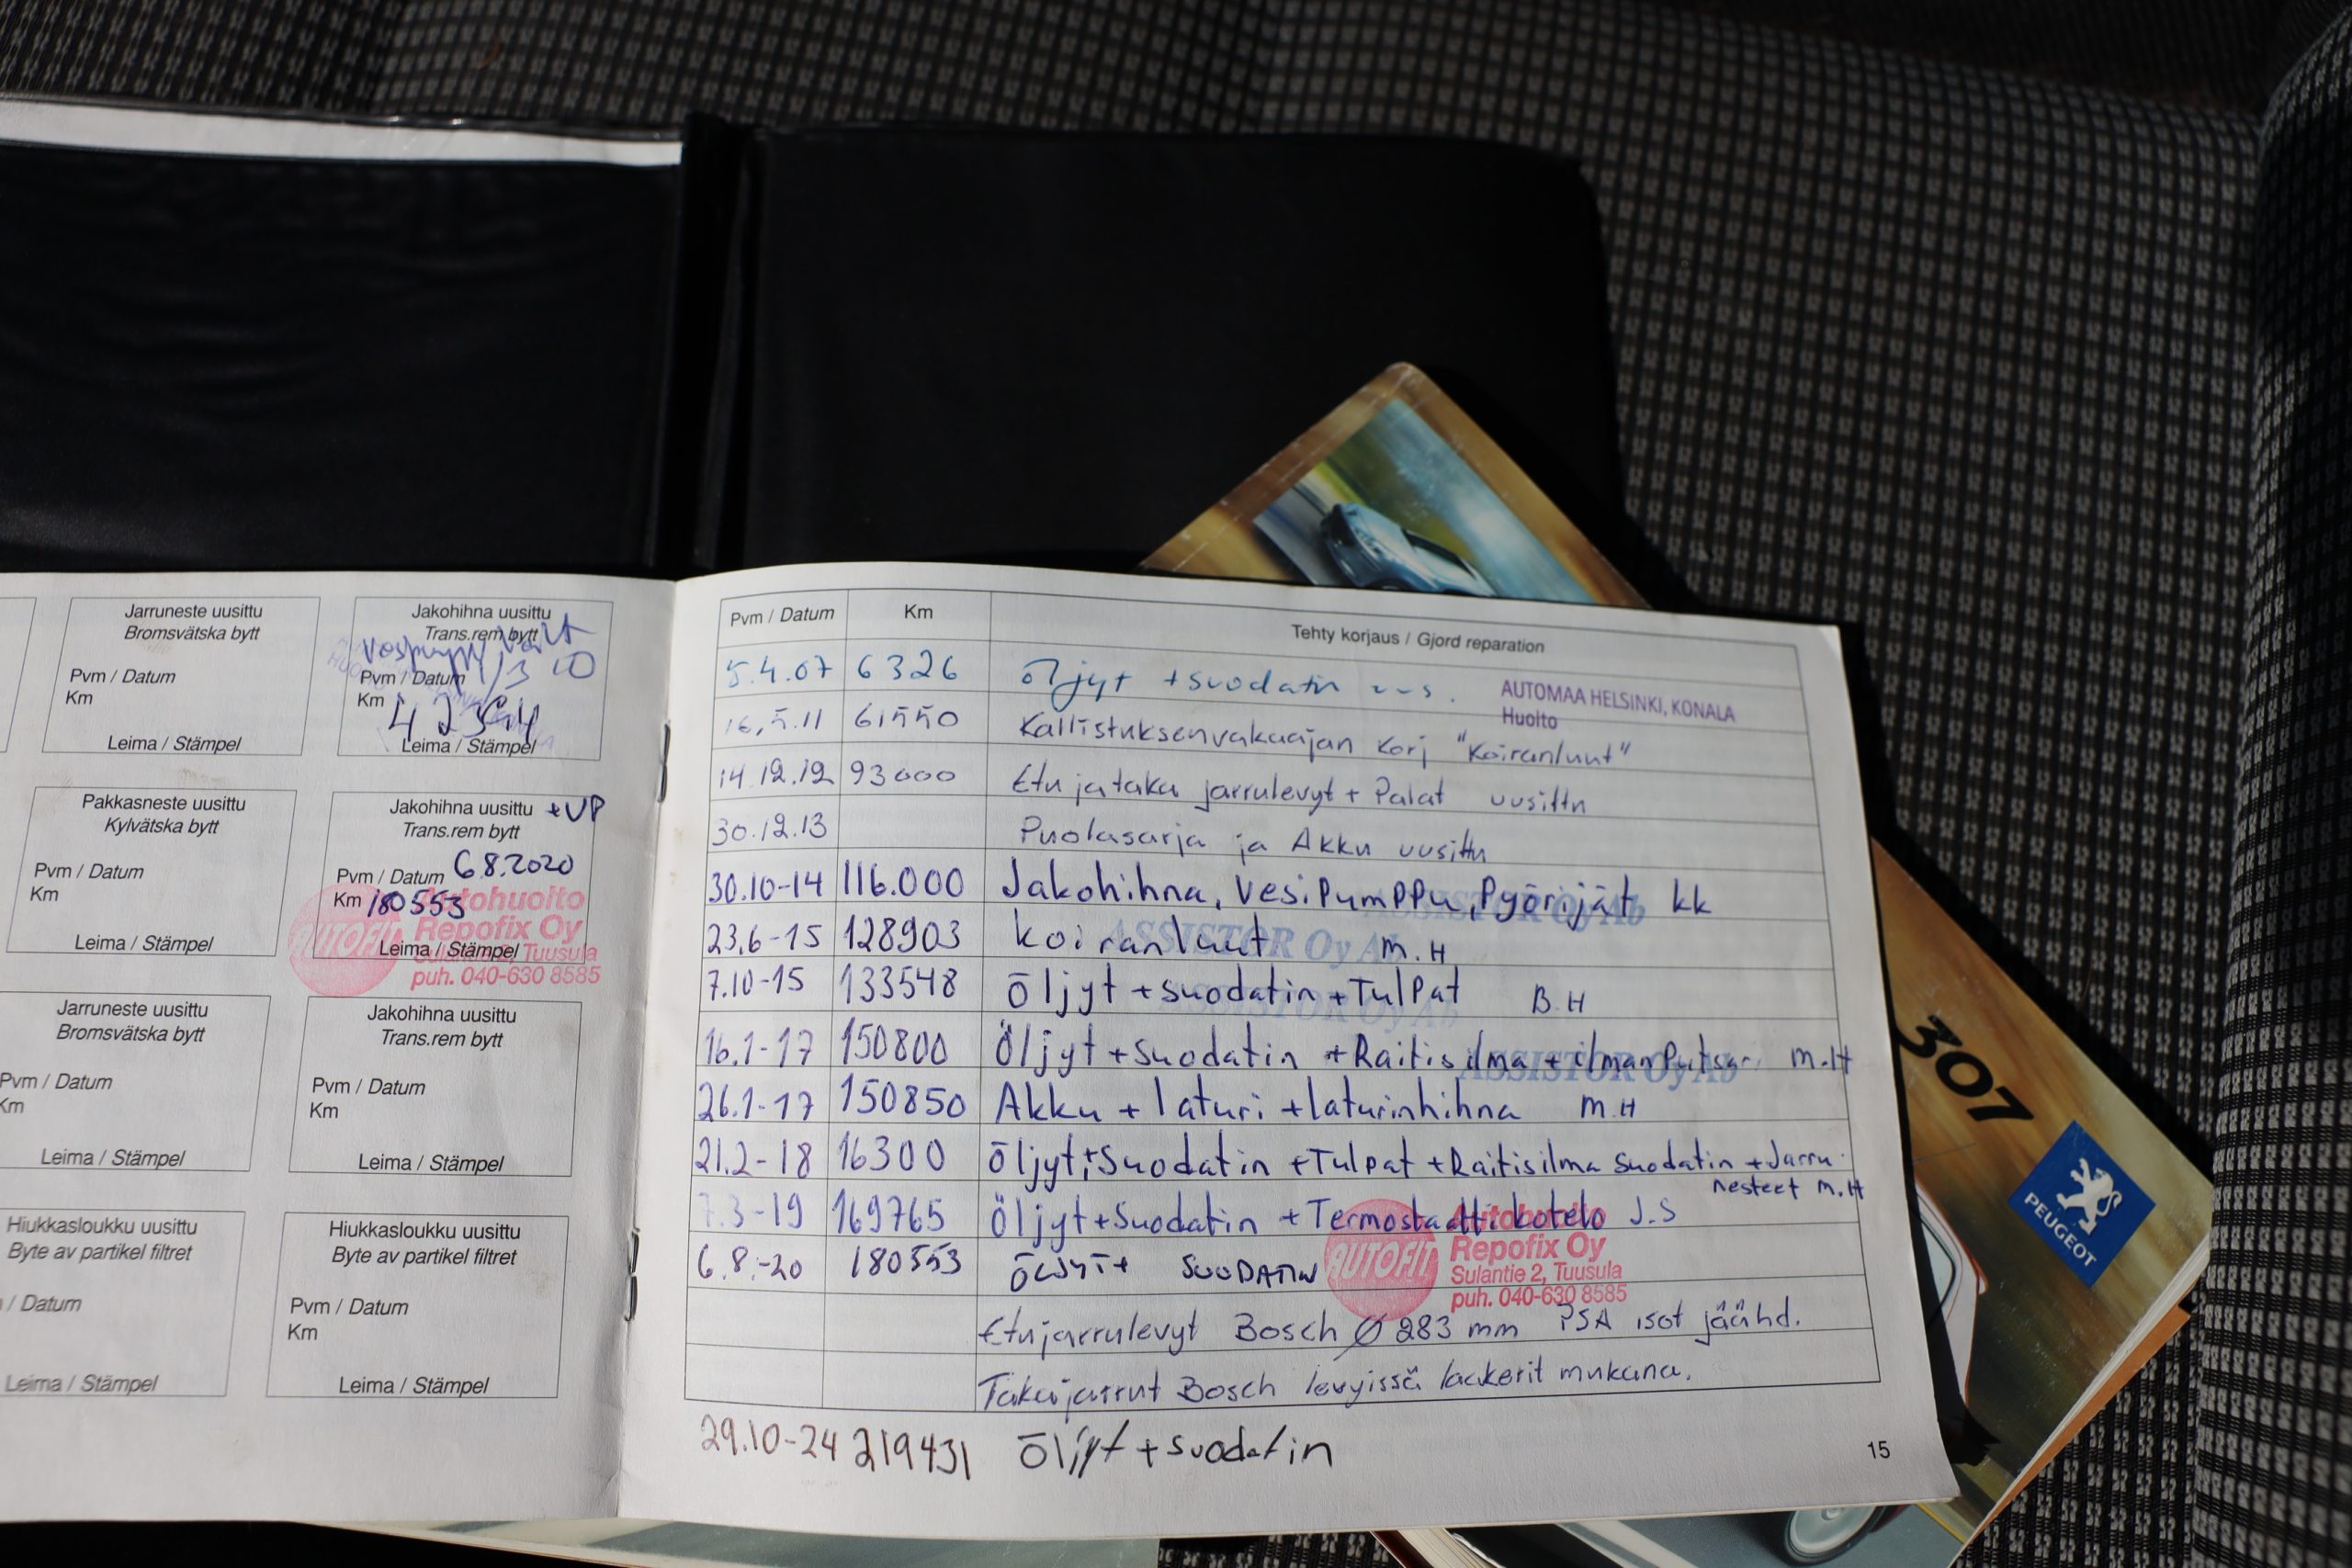 Jarruneste uusittu
Bromsvätska bytt
Pvm / Datum
Km
Leima / Stämpel
Jakohihna uusittu
Trans.rem bytt
Pvm / Datum
Km
Leima / Stämpel
Pakkasneste uusittu
Kylvätska bytt
Pvm / Datum
Km
Leima / Stämpel
Jakohihna uusittu +VP
Trans.rem bytt
Pvm / Datum 6.8.2020
Km 180553
Leima / Stämpel
AUTOFIT
Autohuolto
Repofix Oy
Sulantie 2, Tuusula
puh. 040-630 8585
Jarruneste uusittu
Bromsvätska bytt
Pvm / Datum
Km
Leima / Stämpel
Jakohihna uusittu
Trans.rem bytt
Pvm / Datum
Km
Leima / Stämpel
Hiukkasloukku uusittu
Byte av partikel filtret
/ Datum
Leima / Stämpel
Hiukkasloukku uusittu
Byte av partikel filtret
Pvm / Datum
Km
Leima / Stämpel
Pvm / Datum Km Tehty korjaus / Gjord reparation
5.4.07 6326 Öljyt + suodatin
AUTOMAA HELSINKI, KONALA
Huolto
16.5.11 61550 Kallistuksenvakaajan korj "Koiranluut"
14.12.12 93000 Etu ja taka jarrulevyt + Palat uusittu
30.12.13 Puolasarja ja Akku uusittu
30.10-14 116.000 Jakohihna, VesiPumPPu, Pyörijät kk
ASSISTOR Oy Ab
23.6-15 128903 koiranluut M.H
ASSISTOR Oy Ab
7.10-15 133548 Öljyt + suodatin + TulPat B.H
ASSISTOR Oy Ab
16.1-17 150800 Öljyt + suodatin + Raitisilma + ilman m.H
ASSISTOR Oy Ab
26.1-17 150850 Akku + laturi + laturinhihna M.H
21.2-18 16300 Öljyt + Suodatin + Tulpat + Raitisilma Suodatin + Jarru
nesteet M.H
7.3-19 169765 Öljyt + Suodatin + Termostaattikotelo J.S
6.8.-20 180553 ÖLJYT + SUODATIN
AUTOFIT
Autohuolto
Repofix Oy
Sulantie 2, Tuusula
puh. 040-630 8585
Etujarrulevyt Bosch Ø 283 mm PSA isot jäähd.
Takajarrut Bosch levyissä laakerit mukana.
29.10-24 219431 Öljyt + suodatin
15
307
PEUGEOT